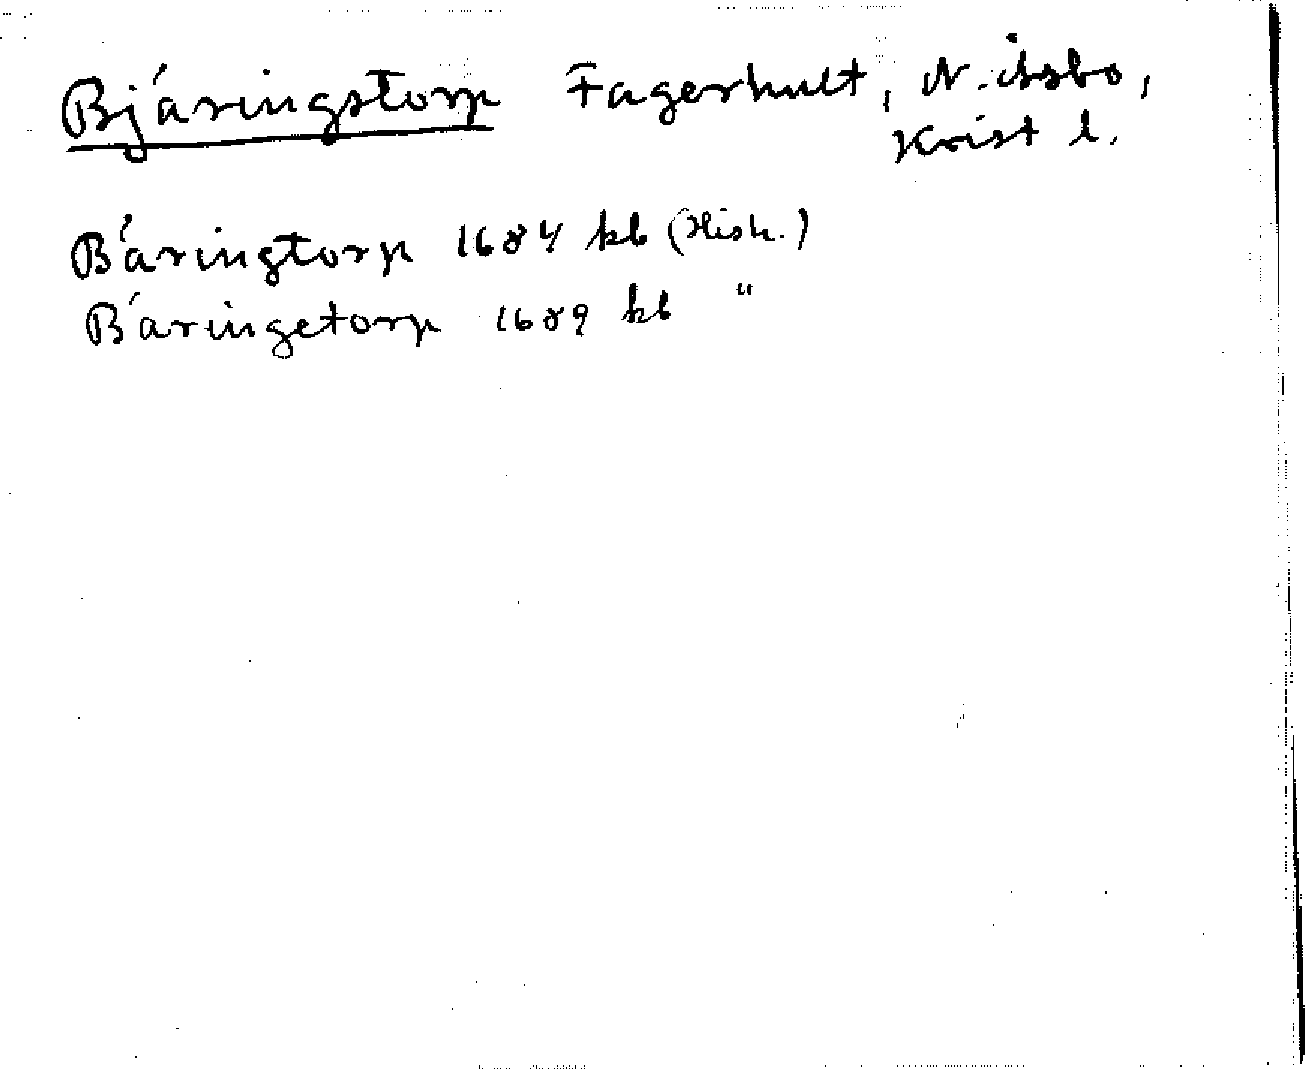 Bjäringstorp Fagerhult, N. Åsbo,
Krist l.
Bäringtorp 1684 kb (Hish.)
Bäringetorp 1689 kb "